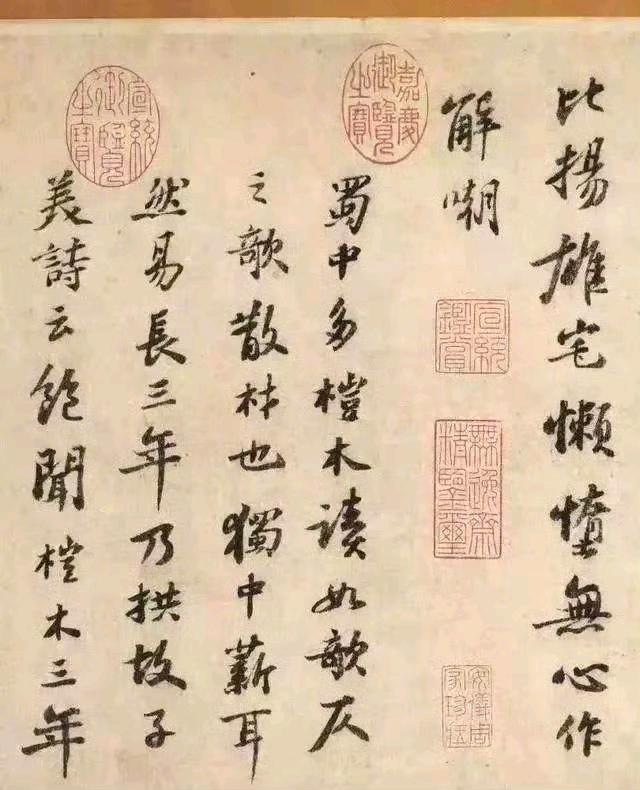 比揚雄宅懶惰無心作
解嘲
蜀中多榿木讀如欹仄
之欹散材也獨中薪耳
然易長三年乃拱故子
美詩云飽聞榿木三年
嘉慶御覽之寶
宣統御覽之寶
宣統鑑賞
無逸齋精鑒璽
安儀周家珍藏